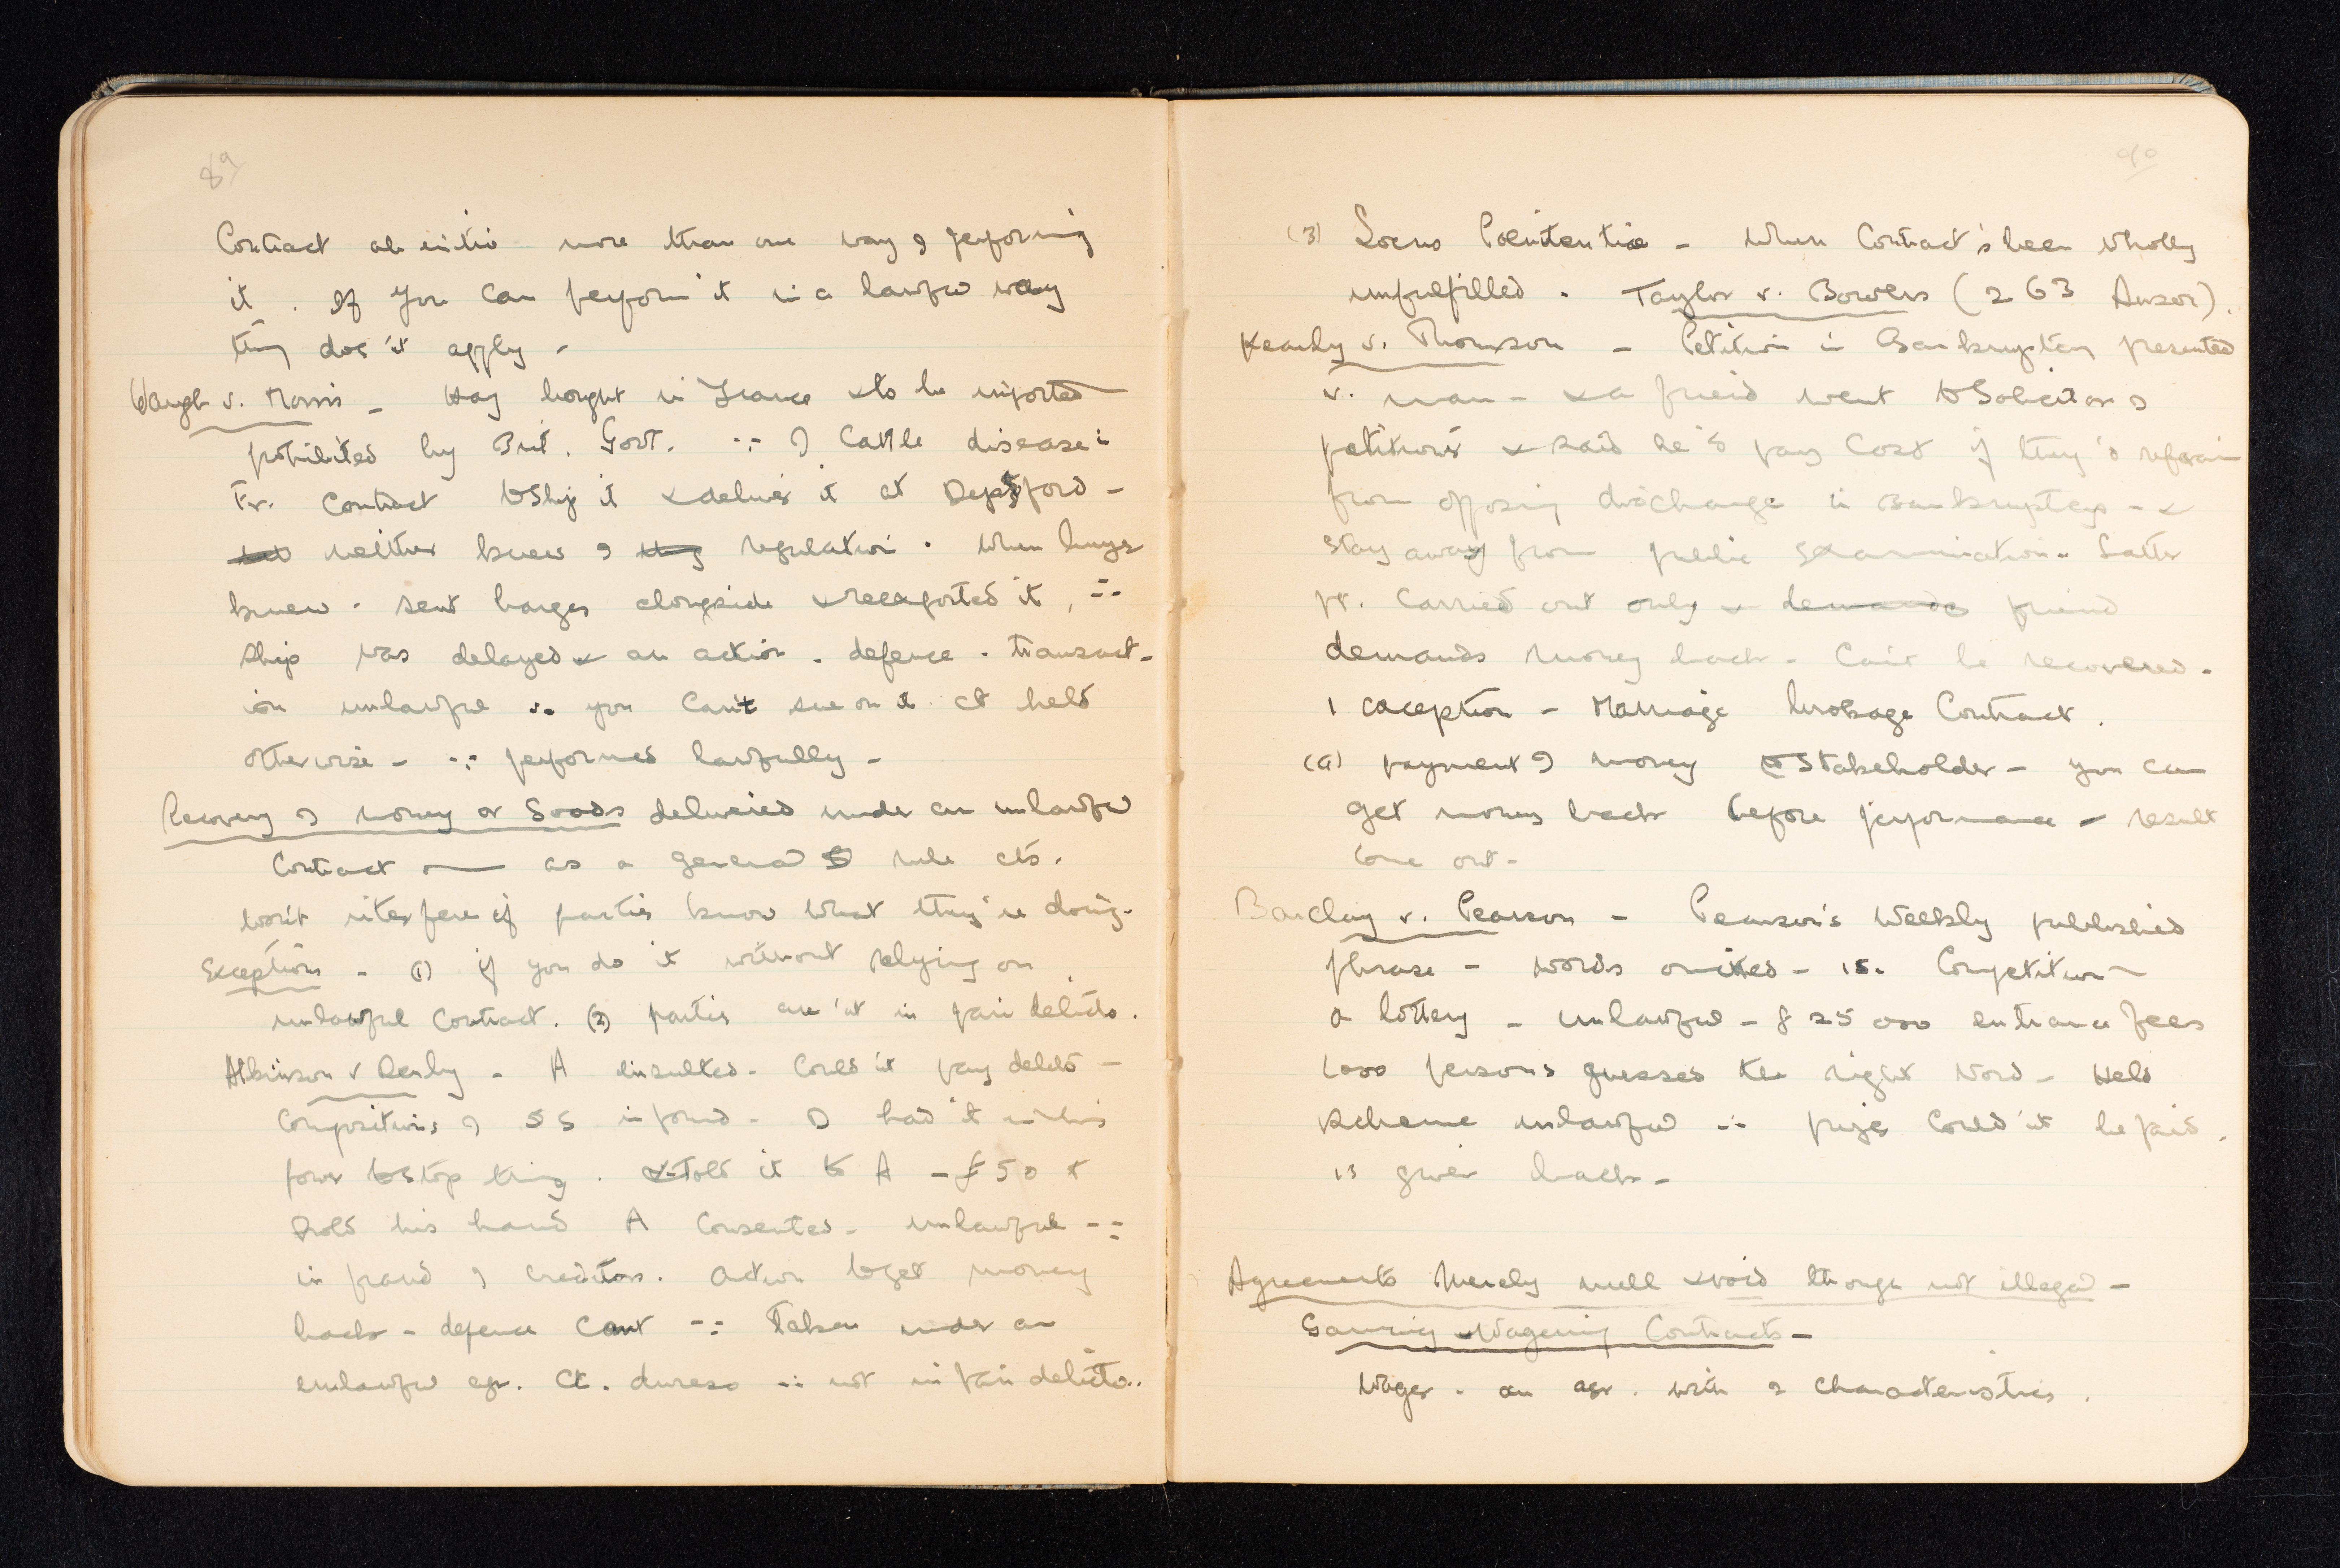 89
Contract ab initio more than one way of performing
it. If you can perform it in a lawful way
this does'nt apply -
Waugh v. Morris - Hay bought in France & to be imported
prohibited by Brit. Govt. ∵ of Cattle disease:
Fr. Contract to ship it & deliver it at Deptford -
neither knew of regulation. When buyer
knew. sent barges alongside & reexported it, ∵
Ship was delayed & an action. defence. transact-
ion unlawful ∴ you can't sue on it. Ct held
otherwise - ∵ performed lawfully -
Recovery of money or Goods delivered under an unlawful
Contract — as a general rule cts.
won't interfere if parties know what they're doing.
Exceptions - (1) if you do it without relying on
unlawful Contract. (2) parties are'nt in pari delicto.
Atkinson v Denby - A insulted. Could'nt pay debts -
Compositions of 5s in pound - D had it in his
power to stop thing. & told it to A - £50 &
hold his hand A Consented - unlawful - ∵
in fraud of creditors. Action to get money
back - defence Cant ∵ Taken under an
unlawful agr. Ct. duress ∴ not in pari delicto.
90
(3) Locus Poenitentiae - When Contract's been wholly
unfulfilled. Taylor v. Bowers (263 Anson).
Kearly v. Thomson - Petition in Bankruptcy presented
v. man - & a friend went to Solicitors of
petitioners & said he'd pay Cost if they'd refrain
from opposing discharge in Bankruptcy - &
stay away from public examination. Latter
pt. Carried out only & demands friend
demands money back - Can't be recovered.
1 exception - Marriage brokage Contract.
(a) payment of money to Stakeholder - you can
get money back before performance - result
come out -
Barclay v. Pearson - Pearson's Weekly published
phrase - words omitted - 1s. Competition
a lottery - unlawful - £25000 entrance fees
1000 persons guessed the right word - Held
scheme unlawful ∴ prizes could'nt be paid.
1s given back -
Agreements Merely null & void though not illegal -
Gaming & Wagering Contracts -
Wager - an agr. with 2 characteristics.